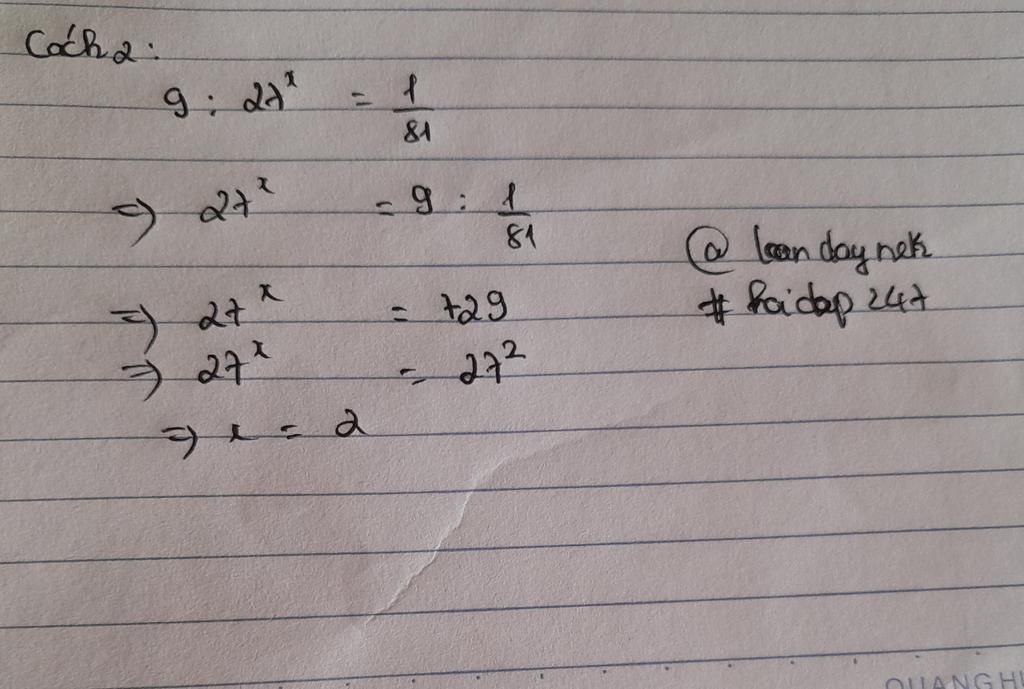 Cách 2:
9 : 27^x = 1/81
=> 27^x = 9 : 1/81
=> 27^x = 729
=> 27^x = 27^2
=> x = 2
@ daynek
# hoidap 247
QUANG